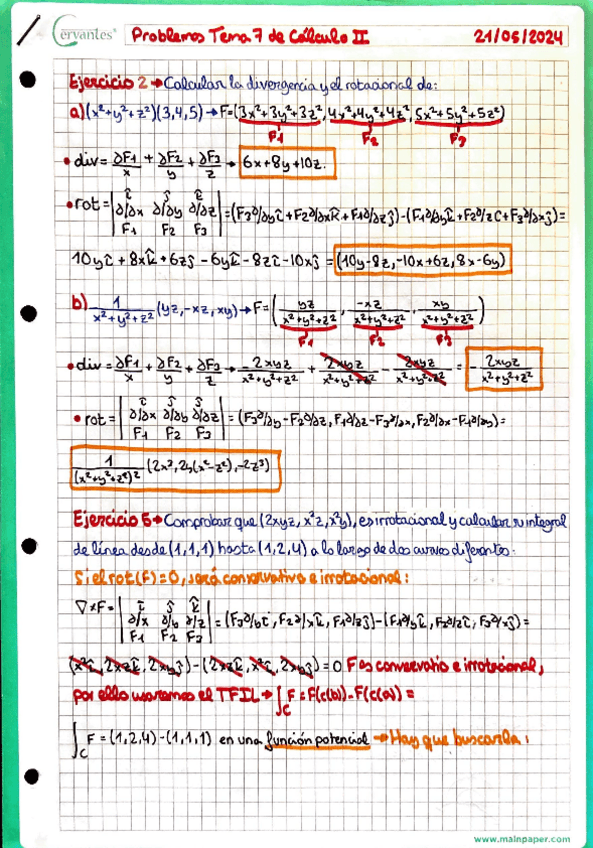 Cervantes Problemas Tema 7 de Cálculo II 21/05/2024
Ejercicio 2 → Calcular la divergencia y el rotacional de:
a) (x²+y²+z²)(3,4,5) → F=(3x²+3y²+3z², 4x²+4y²+4z², 5x²+5y²+5z²)
F1 F2 F3
• div = ∂F1/x + ∂F2/y + ∂F3/z → 6x+8y+10z.
• rot = | î ĵ k̂ |
| ∂/∂x ∂/∂y ∂/∂z | = (F3∂/∂y î + F2∂/∂x k̂ + F1∂/∂z ĵ) - (F1∂/∂y k̂ + F2∂/z î + F3∂/∂x ĵ) =
| F1 F2 F3 |
10y î + 8x k̂ + 6z ĵ - 6y k̂ - 8z î - 10x ĵ = (10y-8z, -10x+6z, 8x-6y)
b) 1/(x²+y²+z²) (yz, -xz, xy) → F = ( yz/(x²+y²+z²), -xz/(x²+y²+z²), xy/(x²+y²+z²) )
F1 F2 F3
• div = ∂F1/x + ∂F2/y + ∂F3/z → - 2xyz/(x²+y²+z²) + 2xyz/(x²+y²+z²) - 2xyz/(x²+y²+z²) = - 2xyz/(x²+y²+z²)
• rot = | î ĵ ĵ |
| ∂/∂x ∂/∂y ∂/∂z | = (F3∂/∂y - F2∂/∂z, F1∂/∂z - F3∂/∂x, F2∂/∂x - F1∂/∂y) =
| F1 F2 F3 |
1/(x²+y²+z²)² (2x³, 2y(x²-z²), -2z³)
Ejercicio 6 → Comprobar que (2xyz, x²z, x²y), es irrotacional y calcular su integral
de línea desde (1,1,1) hasta (1,2,4) a lo largo de dos curvas diferentes.
Si el rot(F) = 0, será conservativo e irrotacional:
∇×F = | î ĵ k̂ |
| ∂/x ∂/y ∂/z | = (F3∂/y î, F2∂/x k̂, F1∂/z ĵ) - (F1∂/y k̂, F2∂/z î, F3∂/x ĵ) =
| F1 F2 F3 |
(x² î, 2xz k̂, 2xy ĵ) - (2xz k̂, x² î, 2xy ĵ) = 0 F es conservativo e irrotacional,
por ello usaremos el TFIL → ∫C F = F(c(b)) - F(c(a)) =
∫C F = (1,2,4) - (1,1,1) en una función potencial → Hay que buscarla:
www.mainpaper.com